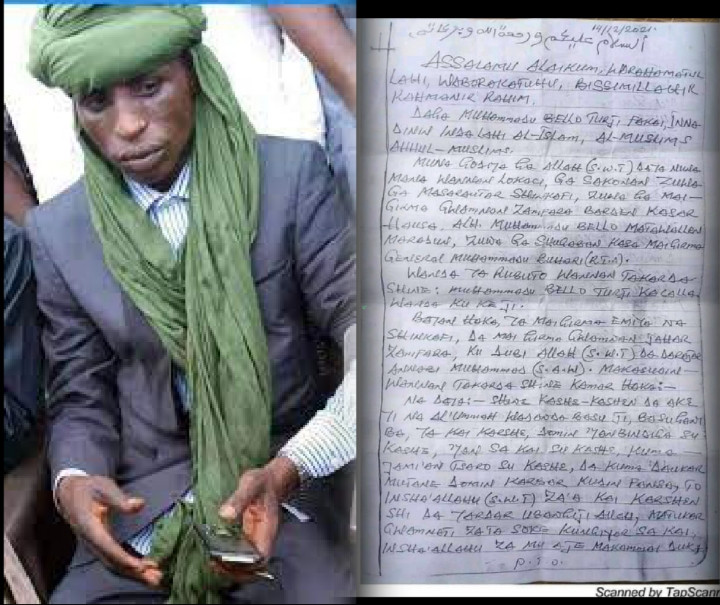 14/12/2021.
السلام عليكم ورحمة الله وبركاته
ASSALAMU ALAIKUM, WARAHAMATUL
LAHI, WABORAKATUHU, BISSIMILLAHIR
RAHMANIR RAHIM,
DAGA MUHAMMADU BELLO TURJI, FAKAI, INNA
DININ INDALAHI AL-ISLAM, AL-MUSLIMS
AHHUL-MUSLIMS.
MUNA GODIYA GA ALLAH (S.W.T) DAYA NUNA
MANA WANNAN LOKACI, GA SAKONAN ZUWA
GA MASARAUTAR SHINKAFI, ZUWA GA MAI-
GIRMA GWAMNAN ZAMFARA BARDEN KASAR
HAUSA, ALH. MUHAMMADU BELLO MATAWALLEN
MARADUN, ZUWA GA SHUGABAN KASA MAI GIRMA
GENERAL MUHAMMADU BUHARI (RTD).
WANDA YA RUBUTO WANNAN TAKARDA
SHINE: MUHAMMADU BELLO TURJI KACALLA
WANDA KU KE JI.
BAYAN HAKA, YA MAI GIRMA EMIYA NA
SHINKAFI, DA MAI GIRMA GWAMNAN JAHAR
ZAMFARA, KU DUBI ALLAH (S.W.T) DA DARAJAR
ANNABI MUHAMMAD (S.A.W). MAKASUDIN
WANNAN TAKARDA SHINE KAMAR HAKA:-
NA DAYA:- SHINE KASHE-KASHEN DA AKE
YI NA AL'UMMAH WADANDA BASU JI, BASU GANI
BA, YA KAI KARSHE, DOMIN 'YANBINDIGA SU
KASHE, 'YAN SA KAI SU KASHE, KUMA
JAMI'AN TSARO SU KASHE, DA KUMA DAUKAR
MUTANE DOMIN KARBAR KUDIN FANSA, TO
INSHA'ALLAHU (S.W.T) ZA'A KAI KARSHEN
SHI DA YARDAR UBANGIJI ALLAH, MATUKAR
GWAMNATI ZATA SOKE KUNGIYOR SA KAI,
INSHA'ALLAHU ZA MU AJE MAKAMAN DUKA
P.T.O.
Scanned by TapScann